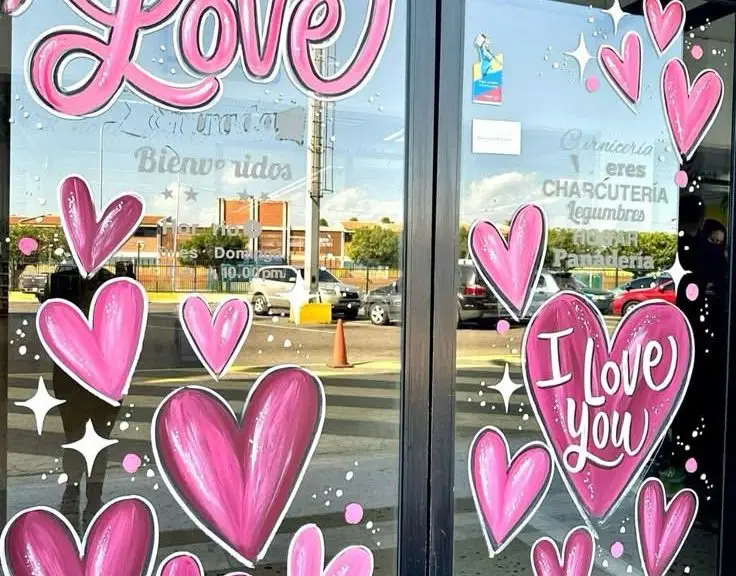 Love
Bienvenidos
Domingo
10:00 pm
Carnicería
eres
CHARCUTERÍA
Legumbres
HOGAR
Panadería
I Love
You